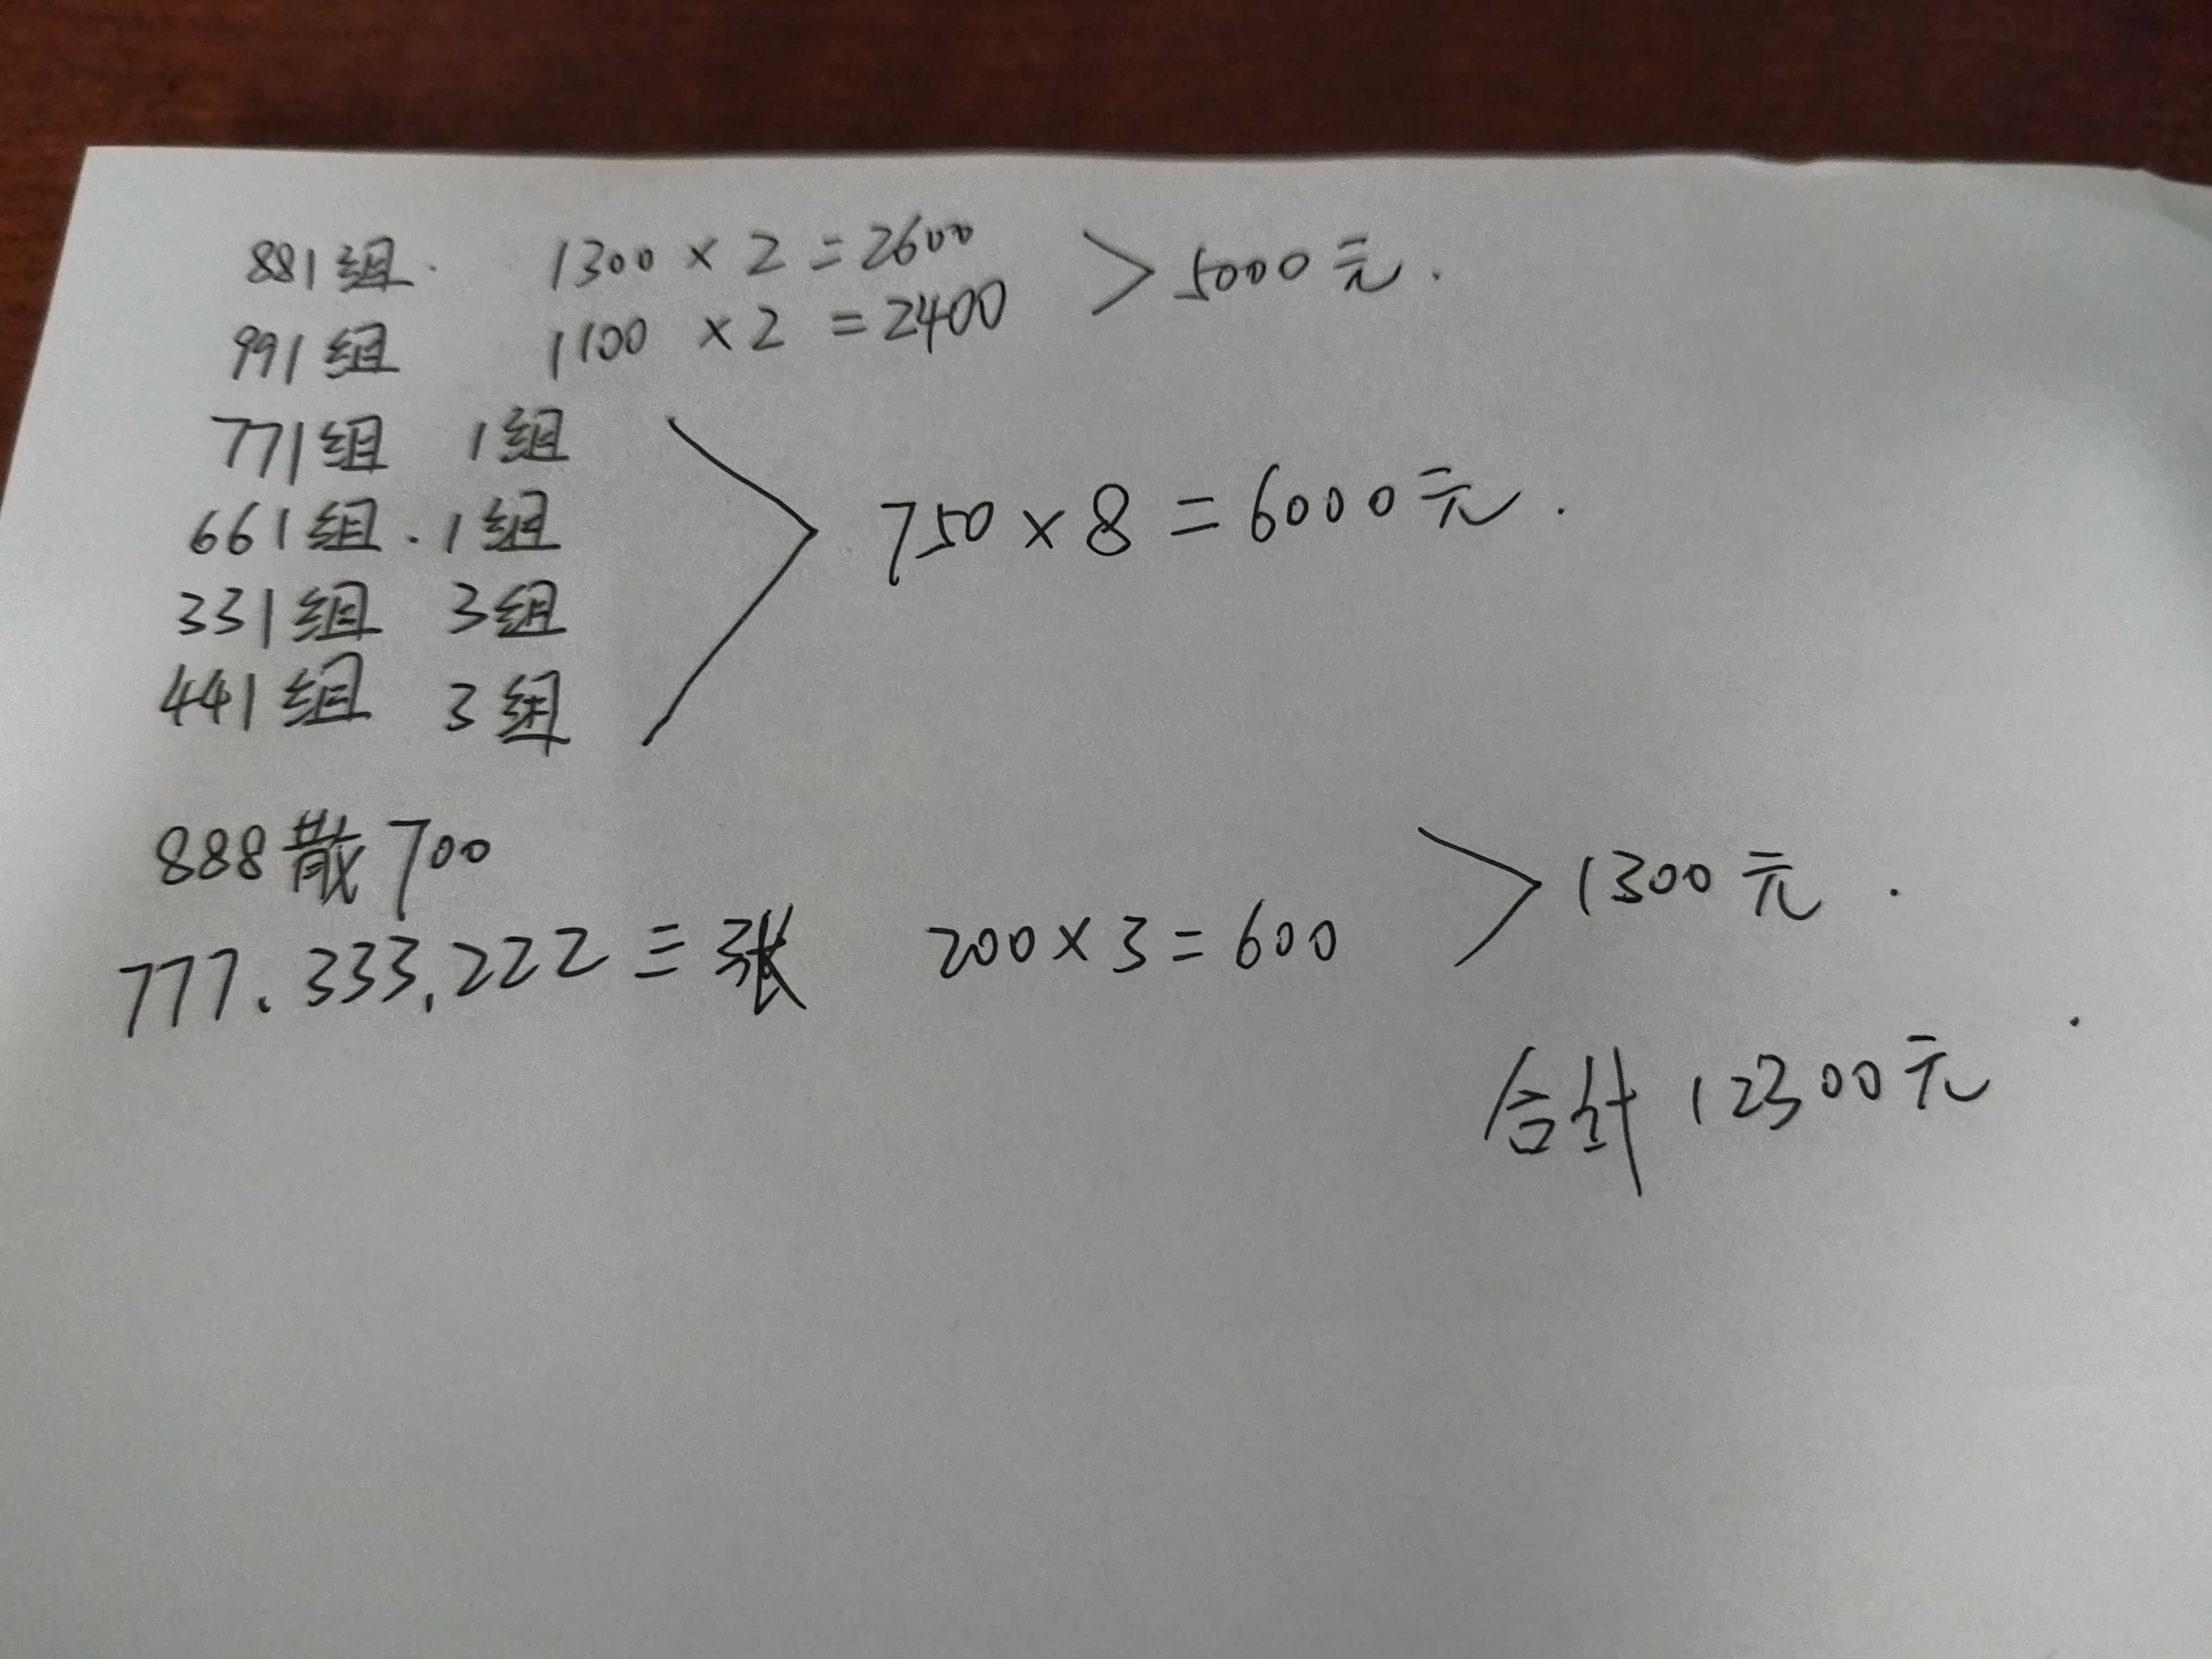 881组. 1300 × 2 = 2600 > 5000元.
991组 1100 × 2 = 2400
771组 1组
661组. 1组 750 × 8 = 6000元.
331组 3组
441组 3组
888散700 > 1300元.
777.333.222三张 200×3=600
合计 12300元